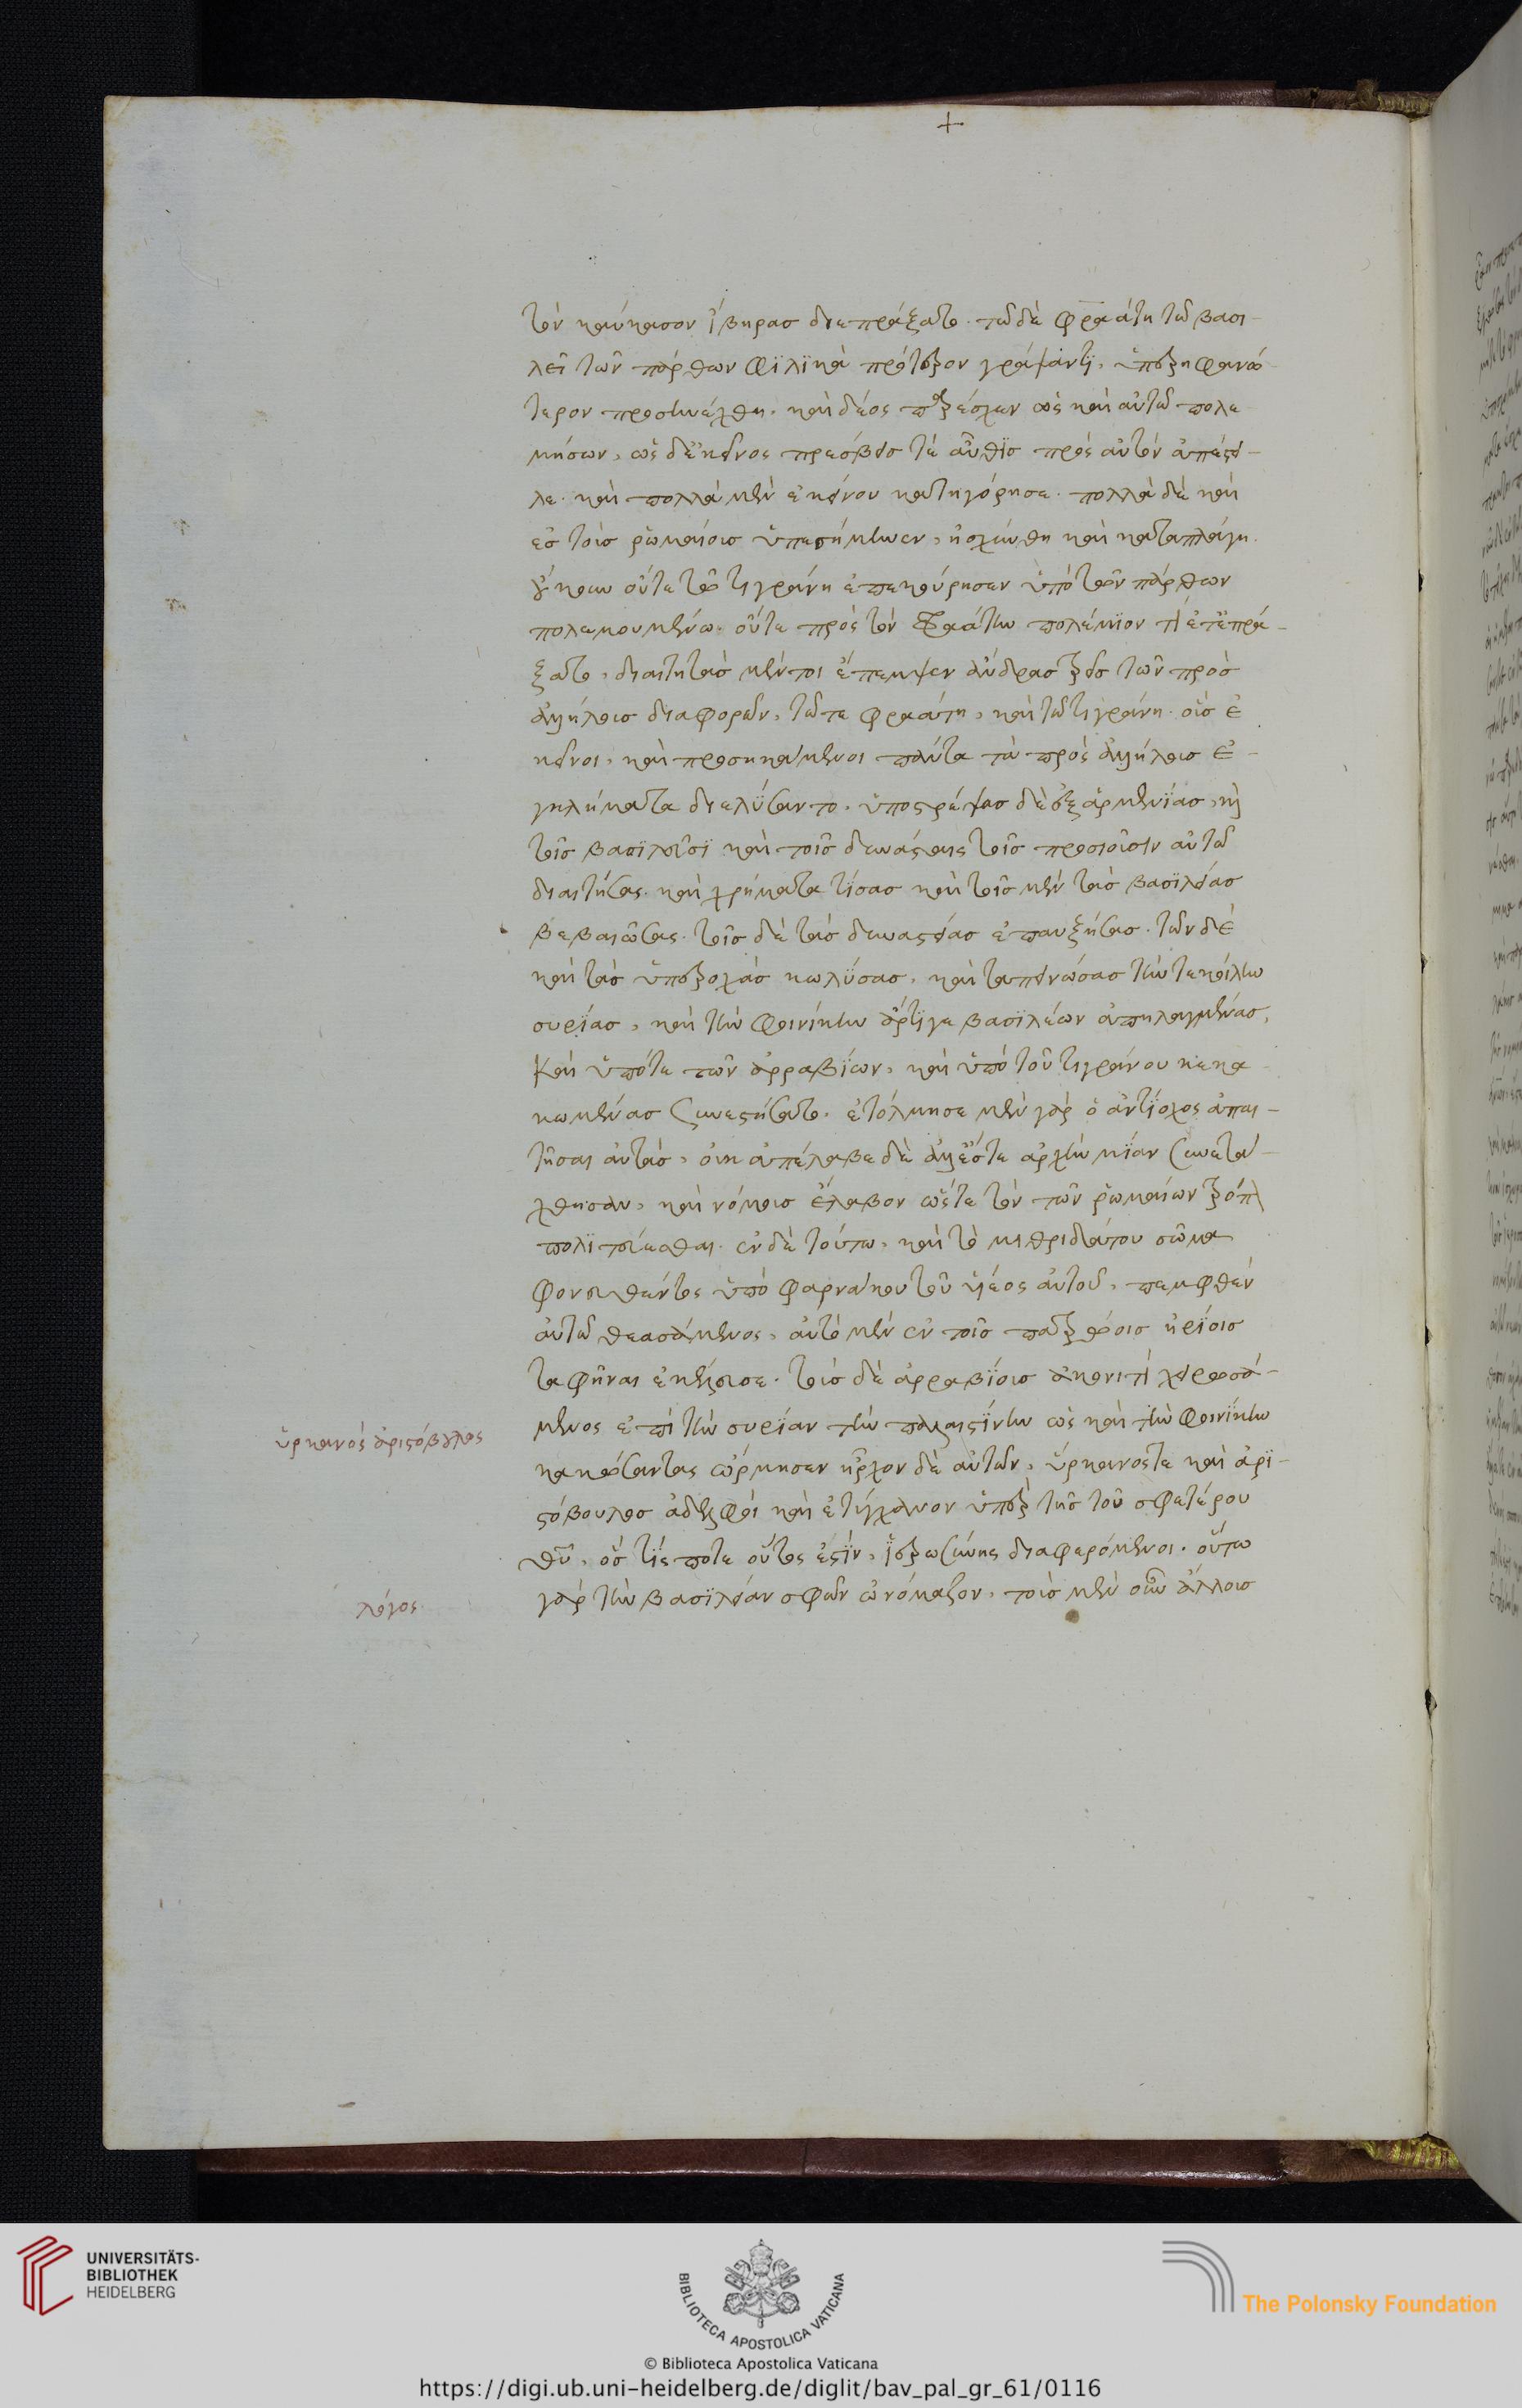 +
τὸν καύκασον ἴβηρας διεπράξατο. τῶ δὲ φραάτη τῶ βασι-
λεῖ τῶν πάρθων φϊλϊκὰ πρότερον γράψαντϊ, ὑπερηφανώ-
τερον προσηνέχθη. καὶ δέος παρέσχεν ὡς καὶ αὐτῶ πολε
μήσων, ὡς δὲ κεῖνος πρεσβεις τὲ αὖθϊς πρὸς αὐτὸν ἀπέστει-
λε. καὶ πολλὰ μὲν ἐκείνου κατηγόρησε. πολλὰ δὲ καὶ
ἐς τοὺς ῥωμαίους ὑπεσήμηνεν, ἠσχύνθη καὶ κατεπλάγη.
οὔτε τῶ τιγράνη ἐπεκούρησεν ὑπὸ τῶν πάρθων
πολεμουμένω. οὔτε πρὸς τὸν φραάτην πολέμϊον τὶ ἔτϊ ἐπρά-
ξατο, διαιτητὰς μέντοι ἔπεμψεν ἄνδρας τρεῖς τῶν πρὸς
ἀλλήλους διαφορῶν, τῶ τε φραάτη, καὶ τῶ τιγράνη. οὓς ἐ
κεῖνοι, καὶ προσηκάμενοι πάντα τὰ πρὸς ἀλλήλους ἐ-
γκλήματα διελύσαντο. ὑποστρέψας δὲ ἐξ ἀρμενίας, καὶ
τοῖς βασϊλεῦσϊ καὶ τοῖς δυνάσταις τοῖς προσιοῦσιν αὐτῶ
διαιτήσας. καὶ χρηματα τίσας καὶ τοῖς μὲν τὰς βασϊλείας
βεβαιώσας. τοῖς δὲ τὰς δυναστείας ἐπαυξήσας. τῶν δὲ
καὶ τὰς ὑπεροχὰς κωλύσας, καὶ ταπεινώσας τήν τε κοίλην
συρίας, καὶ τὴν φοινίκην ἄρτϊ γε βασϊλέων ἀπηλαγμένας,
καὶ ὑπό τε τῶν ἀρραβϊων, καὶ ὑπὸ τοῦ τιγράνου κεκα
κωμένας συνεστήσατο. ἐτόλμησε μὲν γὰρ ὁ ἀντϊοχος ἀπαι-
τῆσαι αὐτὰς, οὐκ ἀπέλαβε δὲ ἀλλ' ἔς τε ἀρχὴν μϊαν συνετά-
χθησαν, καὶ νόμους ἔλαβον ὥστε τὸν τῶν ῥωμαίων τρόπον
πολϊτεύεσθαι. ἐν δὲ τούτω, καὶ τὸ μιθριδάτου σῶμα
φονευθέντος ὑπὸ φαρνάκου τοῦ υἱέος αὐτοῦ, πεμφθὲν
αὐτῶ θεασάμενος, αὐτὸ μὲν ἐν τοῖς πατρώοις ἠρίοις
ταφῆναι ἐκέλευσε. τοὺς δὲ ἀρραβϊους ἀκονιτὶ χειρωσά-
μενος ἐπὶ τὴν συρίαν τὴν παλαιστίνην ὡς καὶ τὴν φοινίκην
κακώσαντας ὥρμησεν ἦρχον δὲ αὐτῶν, ὑρκανός τε καὶ ἀρϊ-
στόβουλος ἀδελφοὶ καὶ ἐτύγχανον ὑπὲρ τῆς τοῦ σφετέρου
θῦ, ὅς τίς ποτε οὗτος ἐστϊν, ϊερωσύνης διαφερόμενοι. οὕτω
γὰρ τὴν βασϊλείαν σφῶν ὠνόμαζον, τοὺς μὲν οὖν ἄλλους
ὑρκανός ἀριστόβουλος
λόγος
UNIVERSITÄTS-
BIBLIOTHEK
HEIDELBERG
BIBLIOTECA APOSTOLICA VATICANA
The Polonsky Foundation
© Biblioteca Apostolica Vaticana
https://digi.ub.uni-heidelberg.de/diglit/bav_pal_gr_61/0116